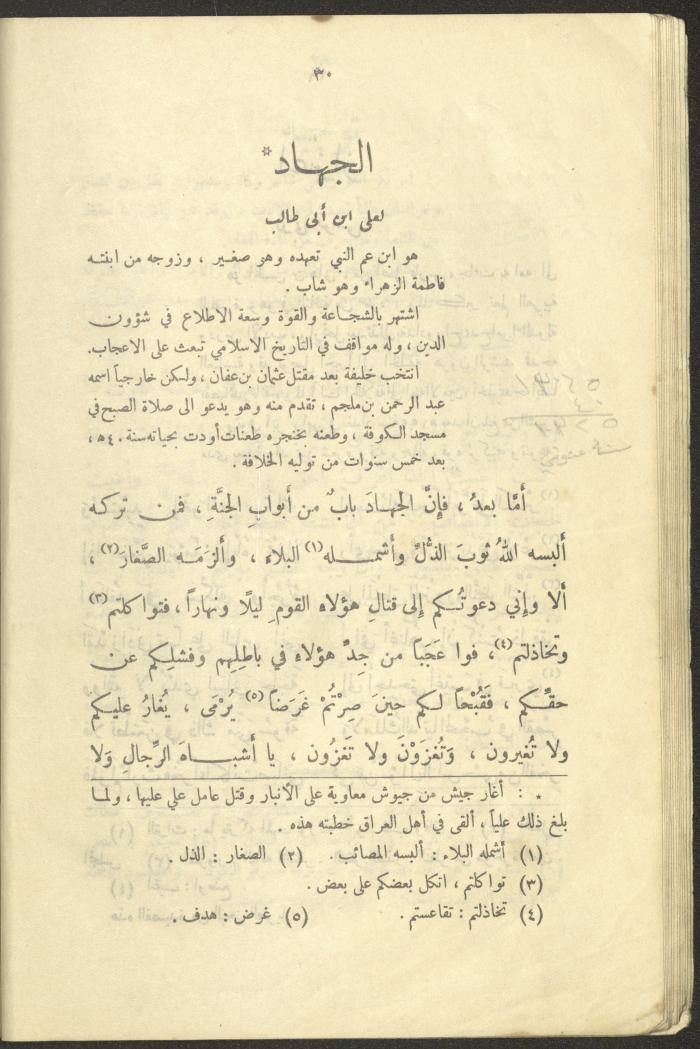 ٣٠
الجهاد*
لعلى ابن أبى طالب
هو ابن عم النبي تعهده وهو صغير ، وزوجه من ابنته
فاطمة الزهراء وهو شاب .
اشتهر بالشجاعة والقوة وسعة الاطلاع في شؤون
الدين ، وله مواقف في التاريخ الاسلامي تبعث على الاعجاب.
انتخب خليفة بعد مقتل عثمان بن عفان ، ولكن خارجياً اسمه
عبد الرحمن بن ملجم ، تقدم منه وهو يدعو الى صلاة الصبح في
مسجد الكوفة ، وطعنه بخنجره طعنات أودت بحياته سنة ٤٠ ه ،
بعد خمس سنوات من توليه الخلافة .
أمَّا بعدُ ، فإنَّ الجهادَ بابٌ من أبوابِ الجنَّةِ ، فمن تركه
ألبسه اللهُ ثوبَ الذُّلِّ وأشمله (١) البلاء ، وألزَمَه الصَّغارَ (٢) ،
ألا وإني دعوتُكم إلى قتالِ هؤلاء القومِ ليلًا ونهاراً ، فتواكلتم (٣)
وتخاذلتم (٤) ، فوا عَجَبَاً من جِدِّ هؤلاءِ في باطِلِهم وفشلِكم عن
حقِّكم ، فَقُبْحَاً لكم حينَ صِرْتُمْ غَرَضَاً (٥) يُرْمَى ، يُغارُ عليكم
ولا تُغيرون ، وَتُغزَوْنَ ولا تَغزُون ، يا أشباهَ الرِّجالِ وَلا
* : أغار جيش من جيوش معاوية على الأنبار وقتل عامل علي عليها ، ولما
بلغ ذلك علياً ، ألقى في أهل العراق خطبته هذه .
(١) أشمله البلاء : ألبسه المصائب . (٢) الصغار : الذل .
(٣) تواكلتم ، اتكل بعضكم على بعض .
(٤) تخاذلتم : تقاعستم . (٥) غرض : هدف .